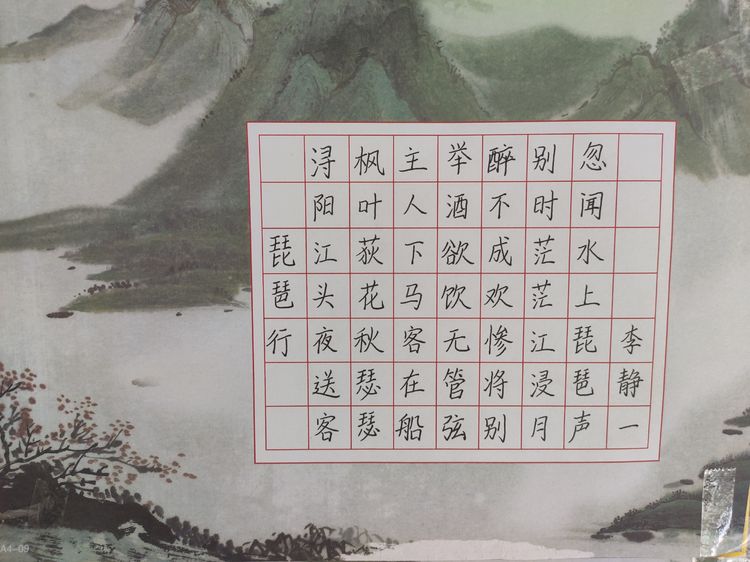 琵琶行
浔阳江头夜送客
枫叶荻花秋瑟瑟
主人下马客在船
举酒欲饮无管弦
醉不成欢惨将别
别时茫茫江浸月
忽闻水上琵琶声
李静一
A4-09